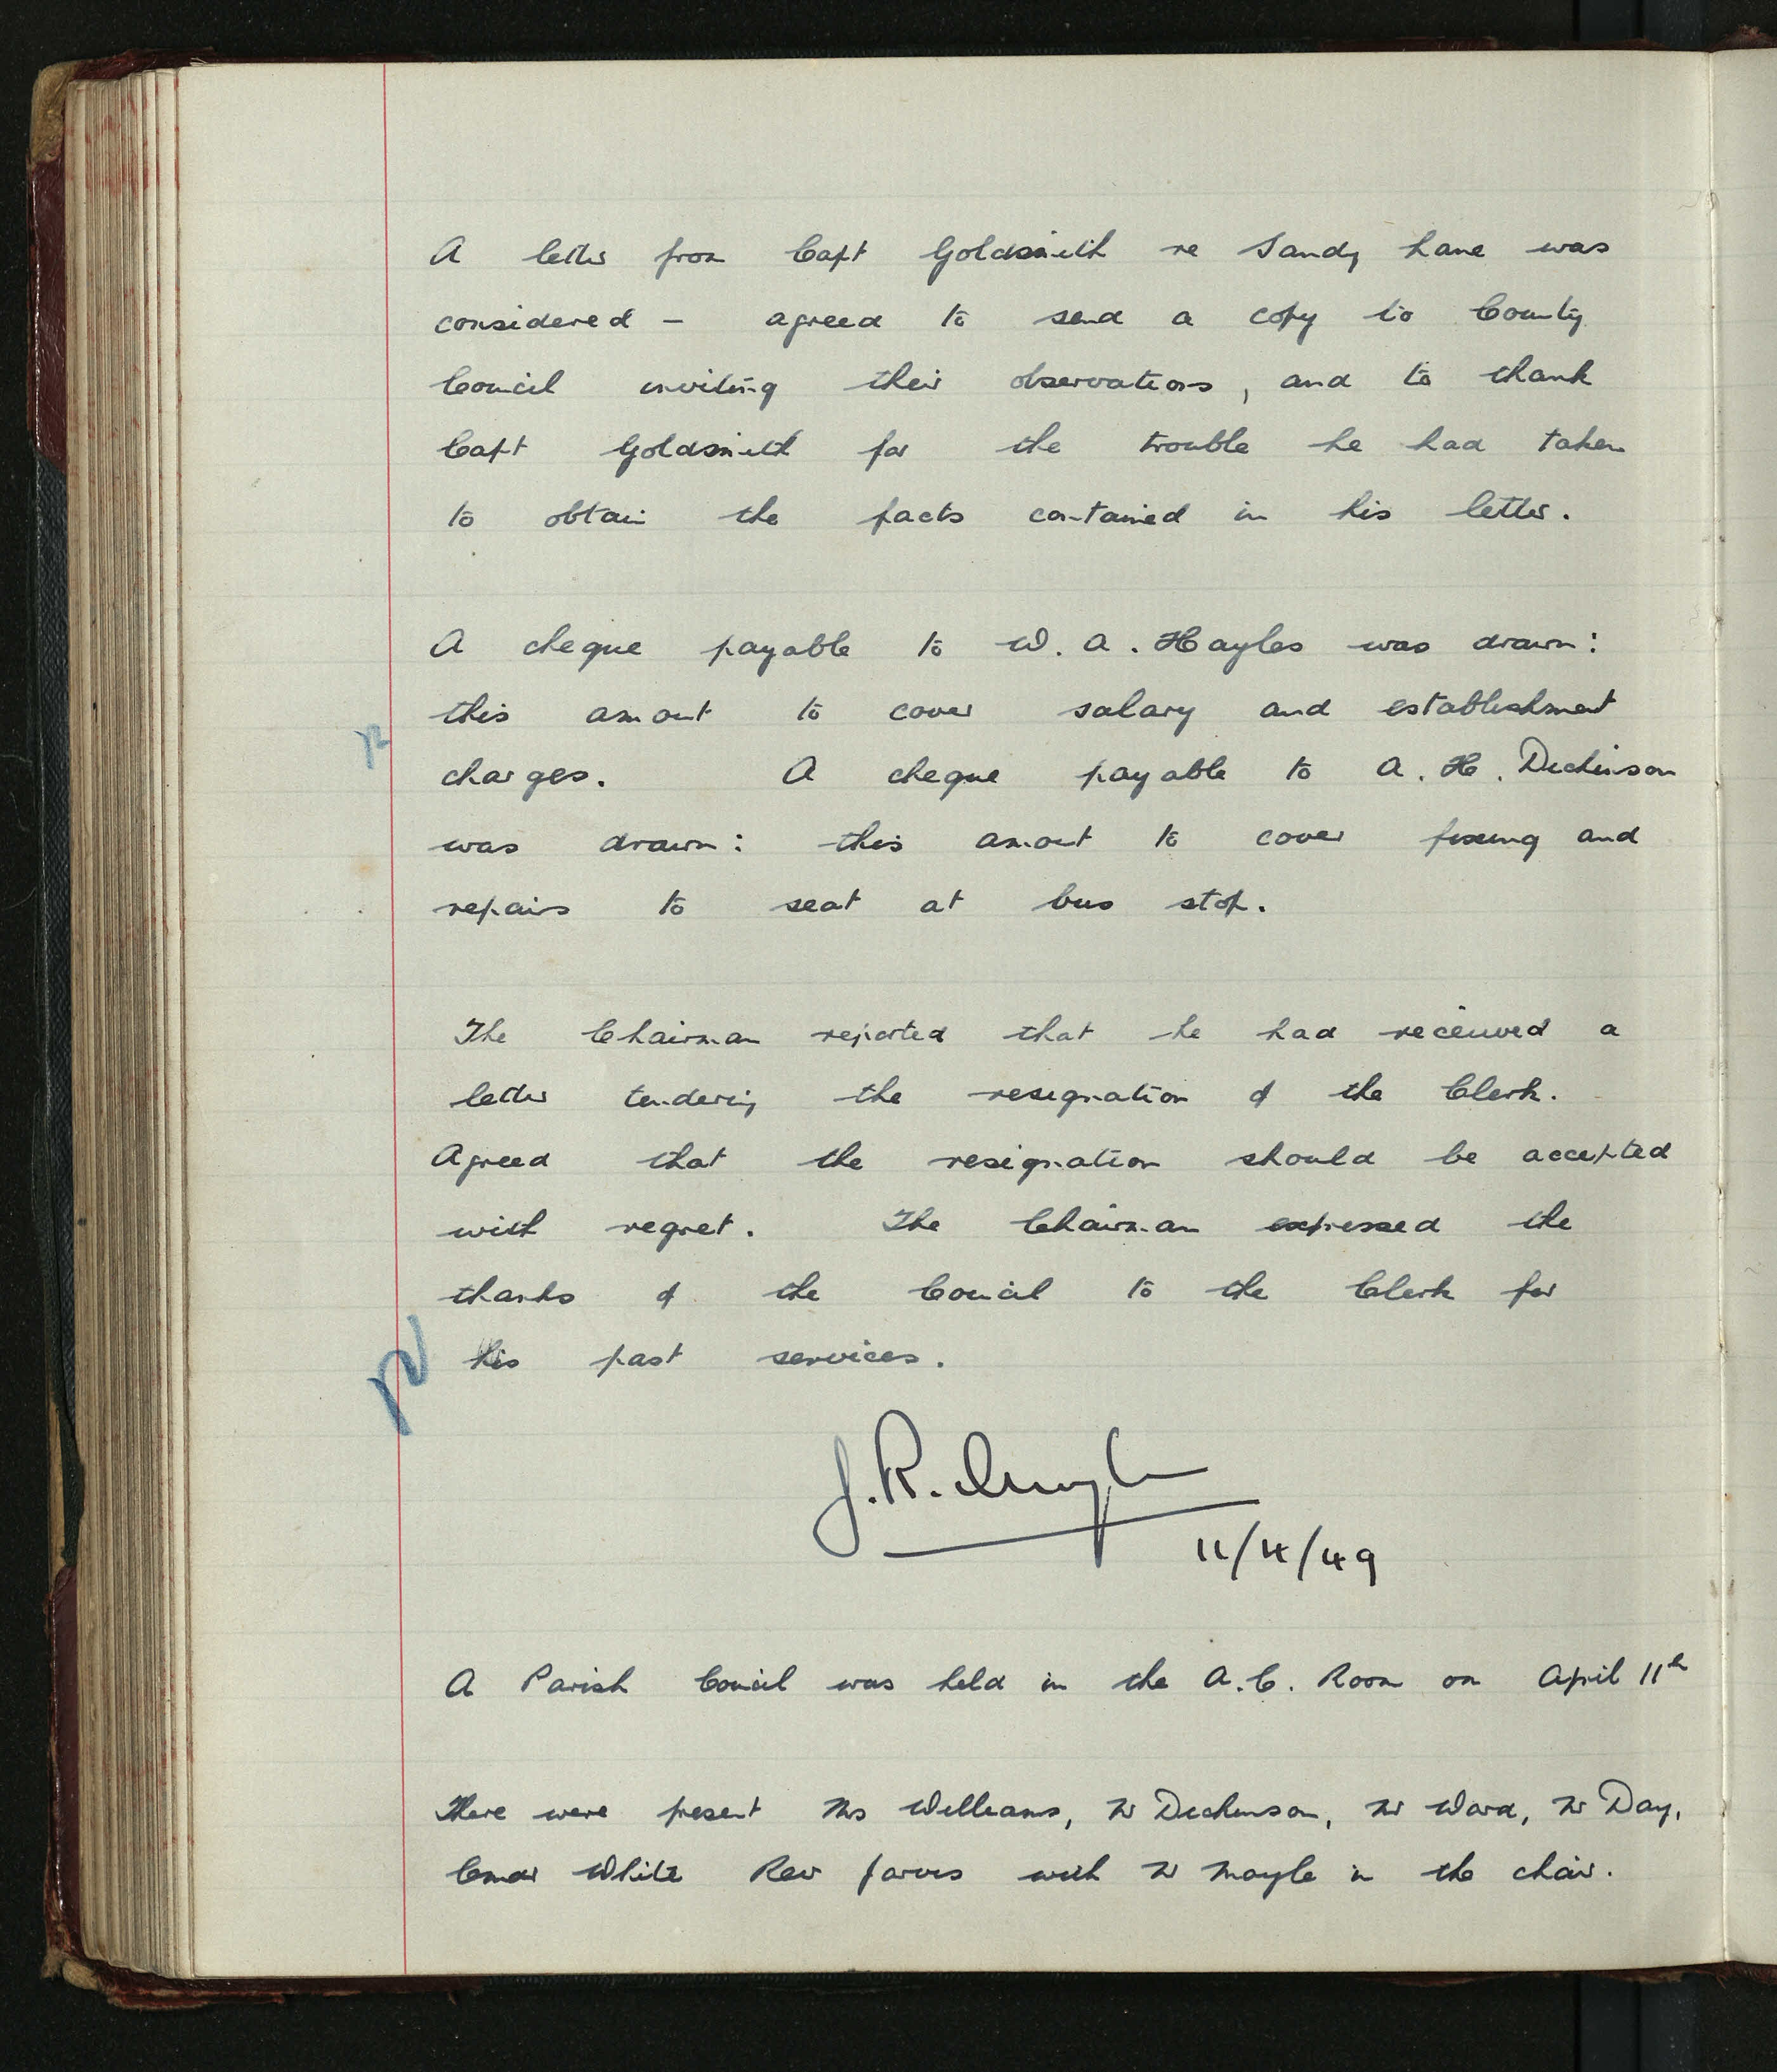 A letter from Capt Goldsmith re Sandy Lane was
considered - agreed to send a copy to County
Council inviting their observations, and to thank
Capt Goldsmith for the trouble he had taken
to obtain the facts contained in his letter.
A cheque payable to W. A. Hayles was drawn:
this amount to cover salary and establishment
charges. A cheque payable to A. H. Dickinson
was drawn: this amount to cover fixing and
repairs to seat at bus stop.
The Chairman reported that he had received a
letter tendering the resignation of the Clerk.
Agreed that the resignation should be accepted
with regret. The Chairman expressed the
thanks of the Council to the Clerk for
his past services.
J. R. Mayle
11/4/49
A Parish Council was held in the A.C. Room on April 11th
There were present Mrs Williams, Mr Dickinson, Mr Ward, Mr Day,
Cmdr White Rev Jarvis with Mr Mayle in the chair.